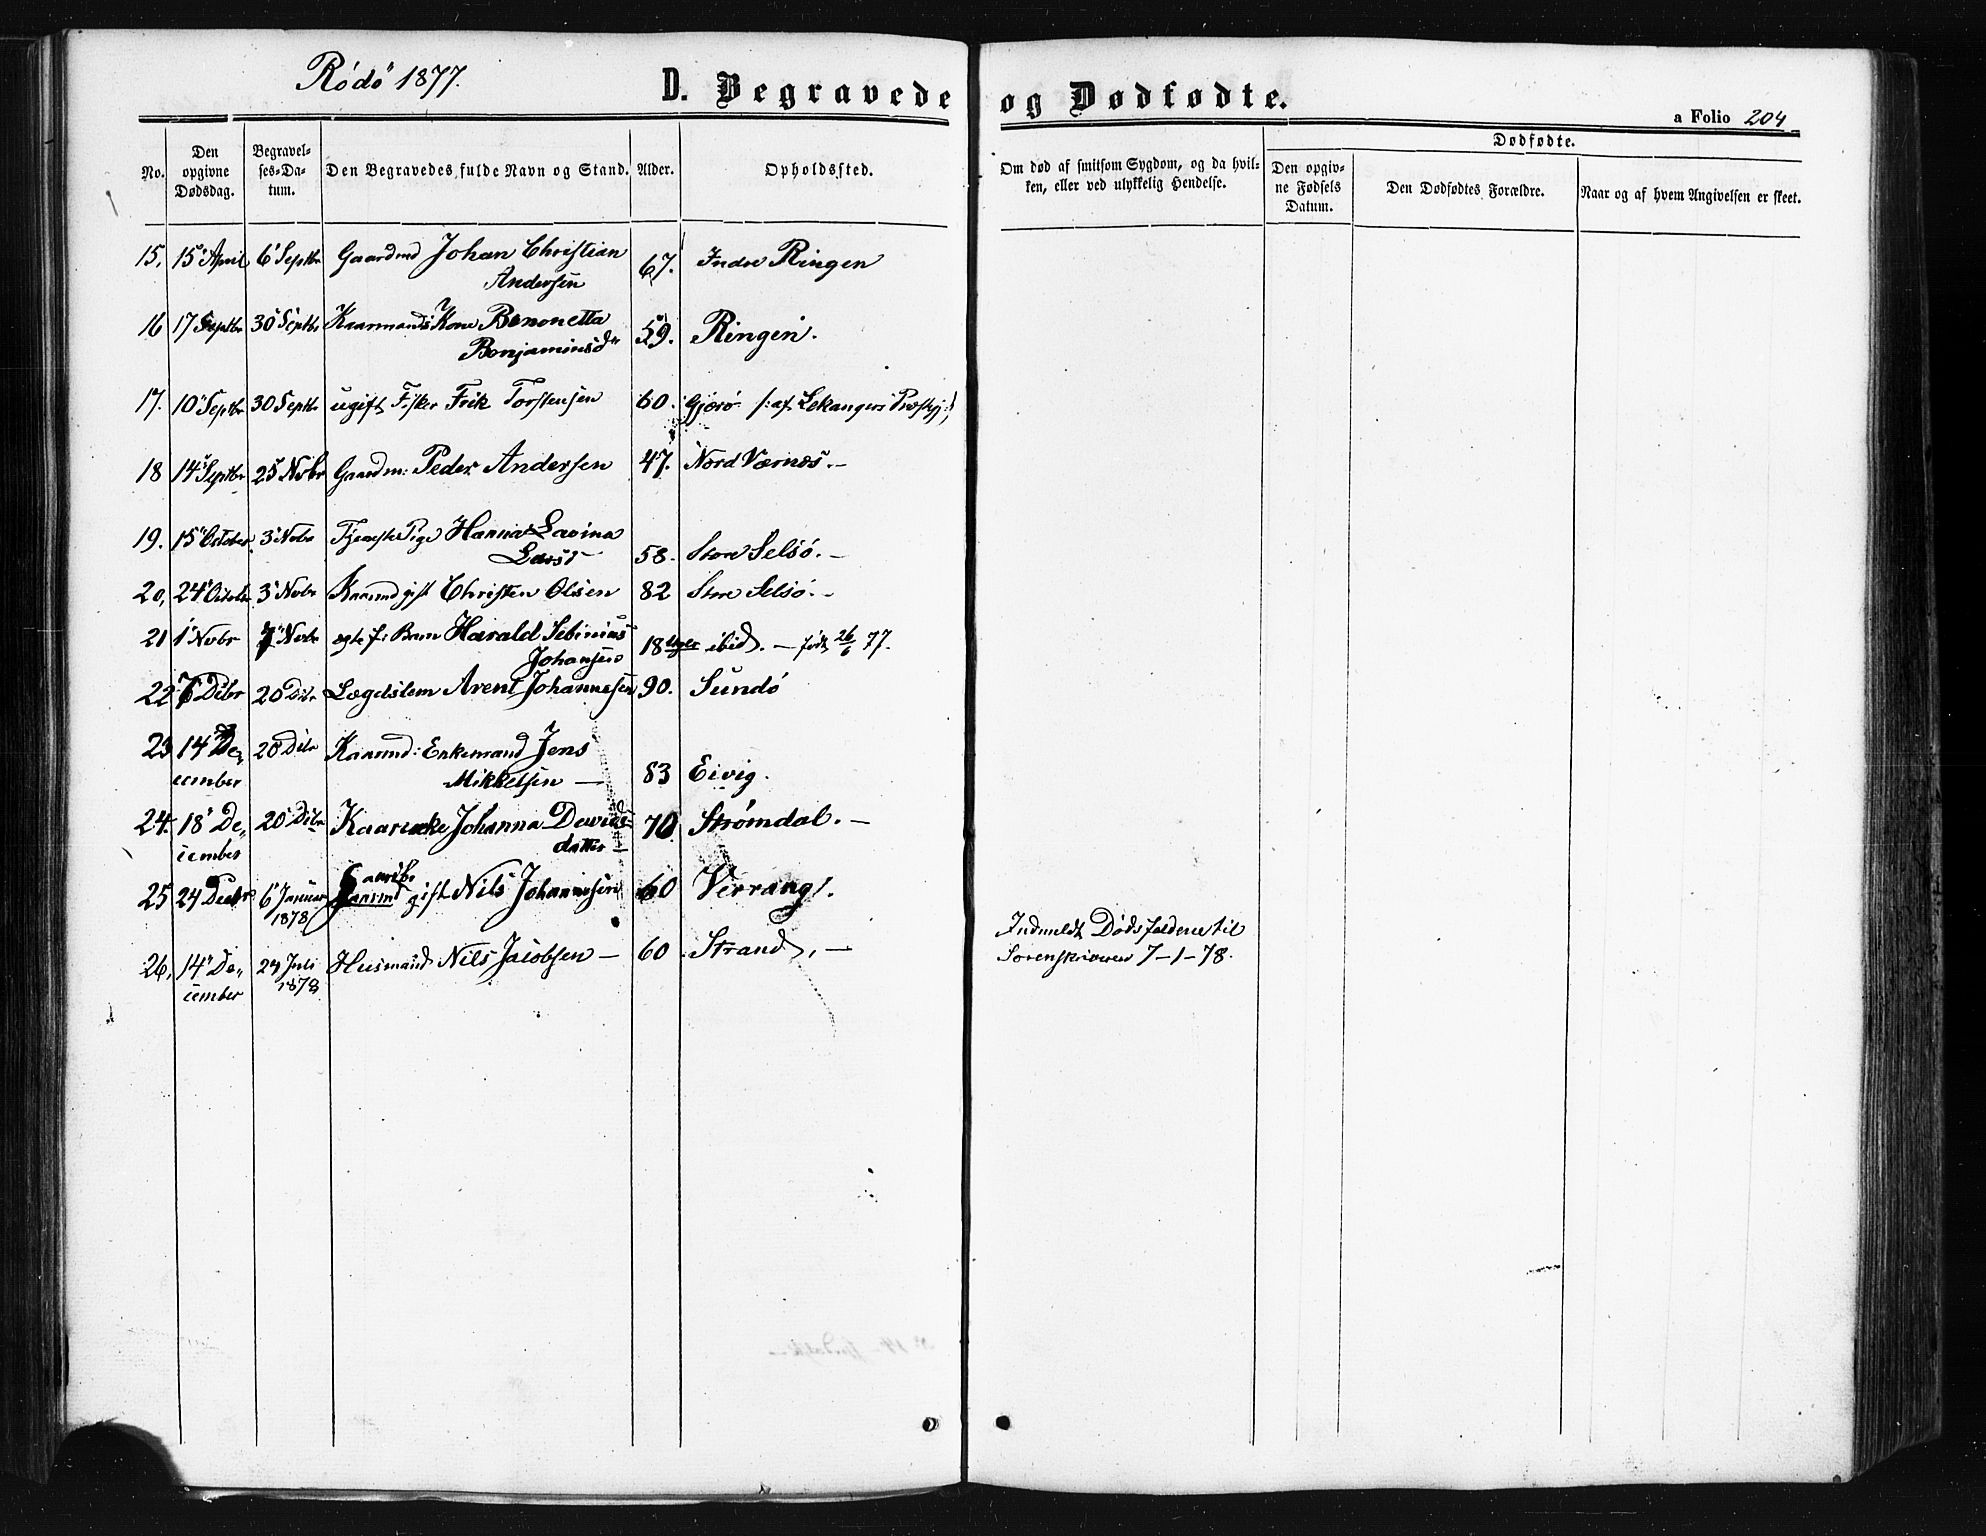 Rödö 1877.
D. Begravede og Dødfødte.
a Folio 204
No.
Den opgivne Dødsdag.
Begravelses-Datum.
Den Begravedes fulde Navn og Stand.
Alder.
Opholdssted.
Om død af smitsom Sygdom, og da hvilken, eller ved ulykkelig Hendelse.
Dødfødte.
Den opgivne Fødsels Datum.
Den Dødfødtes Forældre.
Naar og af hvem Angivelsen er skeet.
15, 15 April 6 Septbr Gaardmd Johan Christian 67. Indre Ringen
Andersen
16 17 Septbr 30 Septbr Kaarmands Kone Benonetta 59. Ringen.
Benjaminsd
17. 10 Septbr 30 Septbr ugift Fisker Erik Torstensen 60. Gjerø /: af Lekangers Præstgj :/
18 14 Septbr 25 Novbr Gaardm: Peder Andersen 47. Nord Værnes. –
19. 15 October 3 Novbr Tjeneste Pige Hanna Lavina
Larsd 58. Store Selsö. –
20, 24 Octobr 3 Novbr Kaarmd gift Christen Olsen 82 Store Selsö. –
21 1 Novbr Novbr ægte f: Barn Harald Sebinius 18 Uger ibid. – født 26/6 77.
Johansen
22 Dcbr 20 Dcbr Lægdslem Arent Johannesen 90. Sundö
23 14 De- 20 Dcbr Kaarmd: Enkemand Jens
cember Mikkelsen — 83 Eivig.
24. 18 De- 20 Dcbr Kaarenke Johanna Davids- 70 Strømdal. –
cember datter –
25 24 Decbr 6 Januar gift Nils Johannesen 60 Verrang.
1878
26, 14 De- 24 Juli Husmand Nils Jacobsen – 60 Strand, –
cember 1878
Indmeldt Dødsfaldene til
Sorenskriveren 7–1–78.